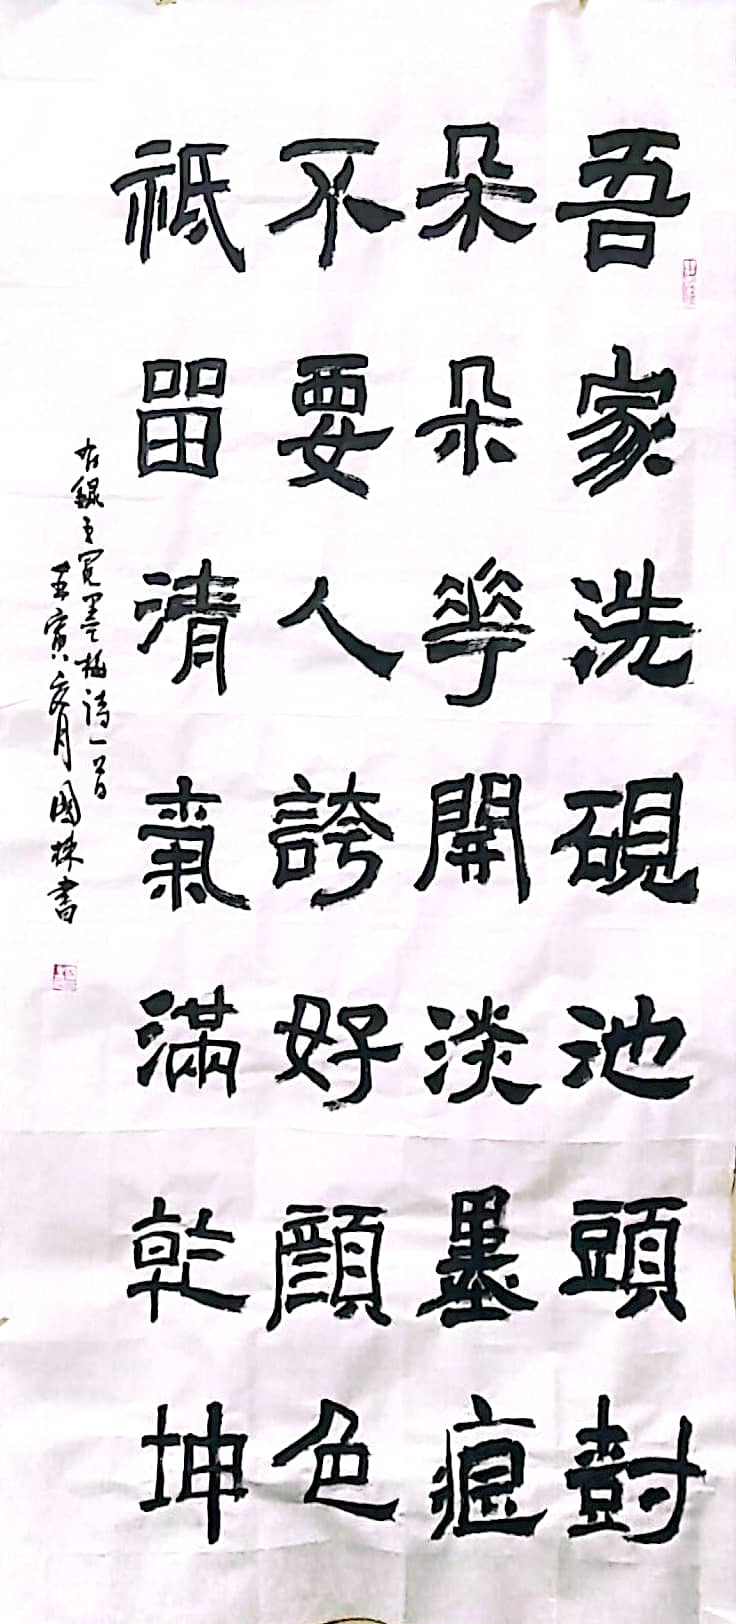 吾家洗硯池頭尌
朵朵花開淡墨痕
不要人誇好顏色
祗留清氣滿乾坤
右錄王冕墨梅詩一首
壬寅亥月國林書